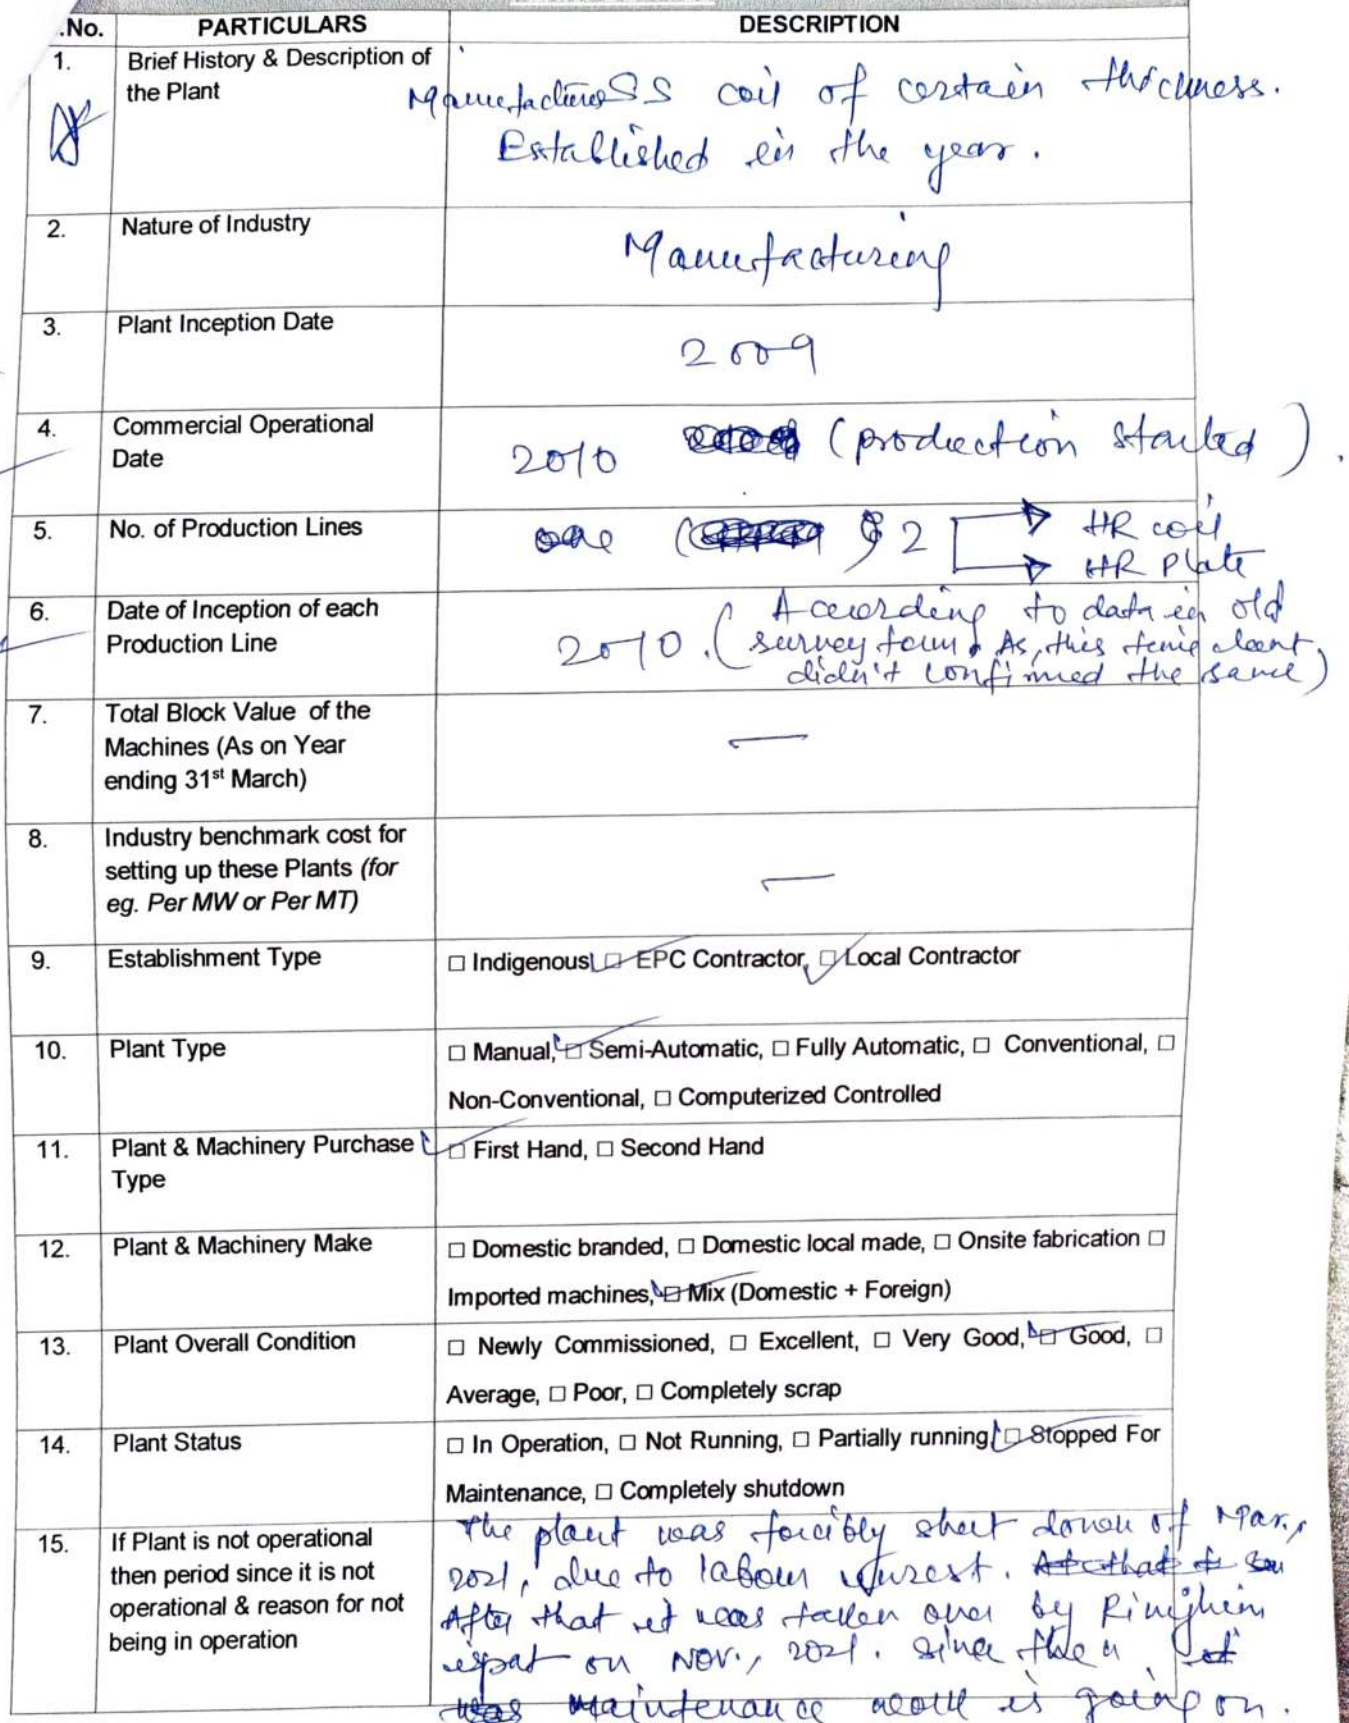 .No. PARTICULARS DESCRIPTION
1. Brief History & Description of
the Plant
Manufactures SS coil of certain thickness.
Established in the year.
2. Nature of Industry
Manufacturing
3. Plant Inception Date
2009
4. Commercial Operational
Date
2010 (production started).
5. No. of Production Lines
2 HR coil
HR Plate
6. Date of Inception of each
Production Line
2010. (According to data in old
survey form. As, this time client
didn't confirmed the same)
7. Total Block Value of the
Machines (As on Year
ending 31st March)
—
8. Industry benchmark cost for
setting up these Plants (for
eg. Per MW or Per MT)
—
9. Establishment Type
☐ Indigenous, ☐ EPC Contractor, ☐ Local Contractor
10. Plant Type
☐ Manual, ☐ Semi-Automatic, ☐ Fully Automatic, ☐ Conventional, ☐
Non-Conventional, ☐ Computerized Controlled
11. Plant & Machinery Purchase
Type
☐ First Hand, ☐ Second Hand
12. Plant & Machinery Make
☐ Domestic branded, ☐ Domestic local made, ☐ Onsite fabrication ☐
Imported machines, ☐ Mix (Domestic + Foreign)
13. Plant Overall Condition
☐ Newly Commissioned, ☐ Excellent, ☐ Very Good, ☐ Good, ☐
Average, ☐ Poor, ☐ Completely scrap
14. Plant Status
☐ In Operation, ☐ Not Running, ☐ Partially running, ☐ Stopped For
Maintenance, ☐ Completely shutdown
15. If Plant is not operational
then period since it is not
operational & reason for not
being in operation
The plant was forcibly shut down of Mar,
2021, due to labour unrest.
After that it was taken over by
ispat on Nov., 2021. since then
maintenance work is going on.